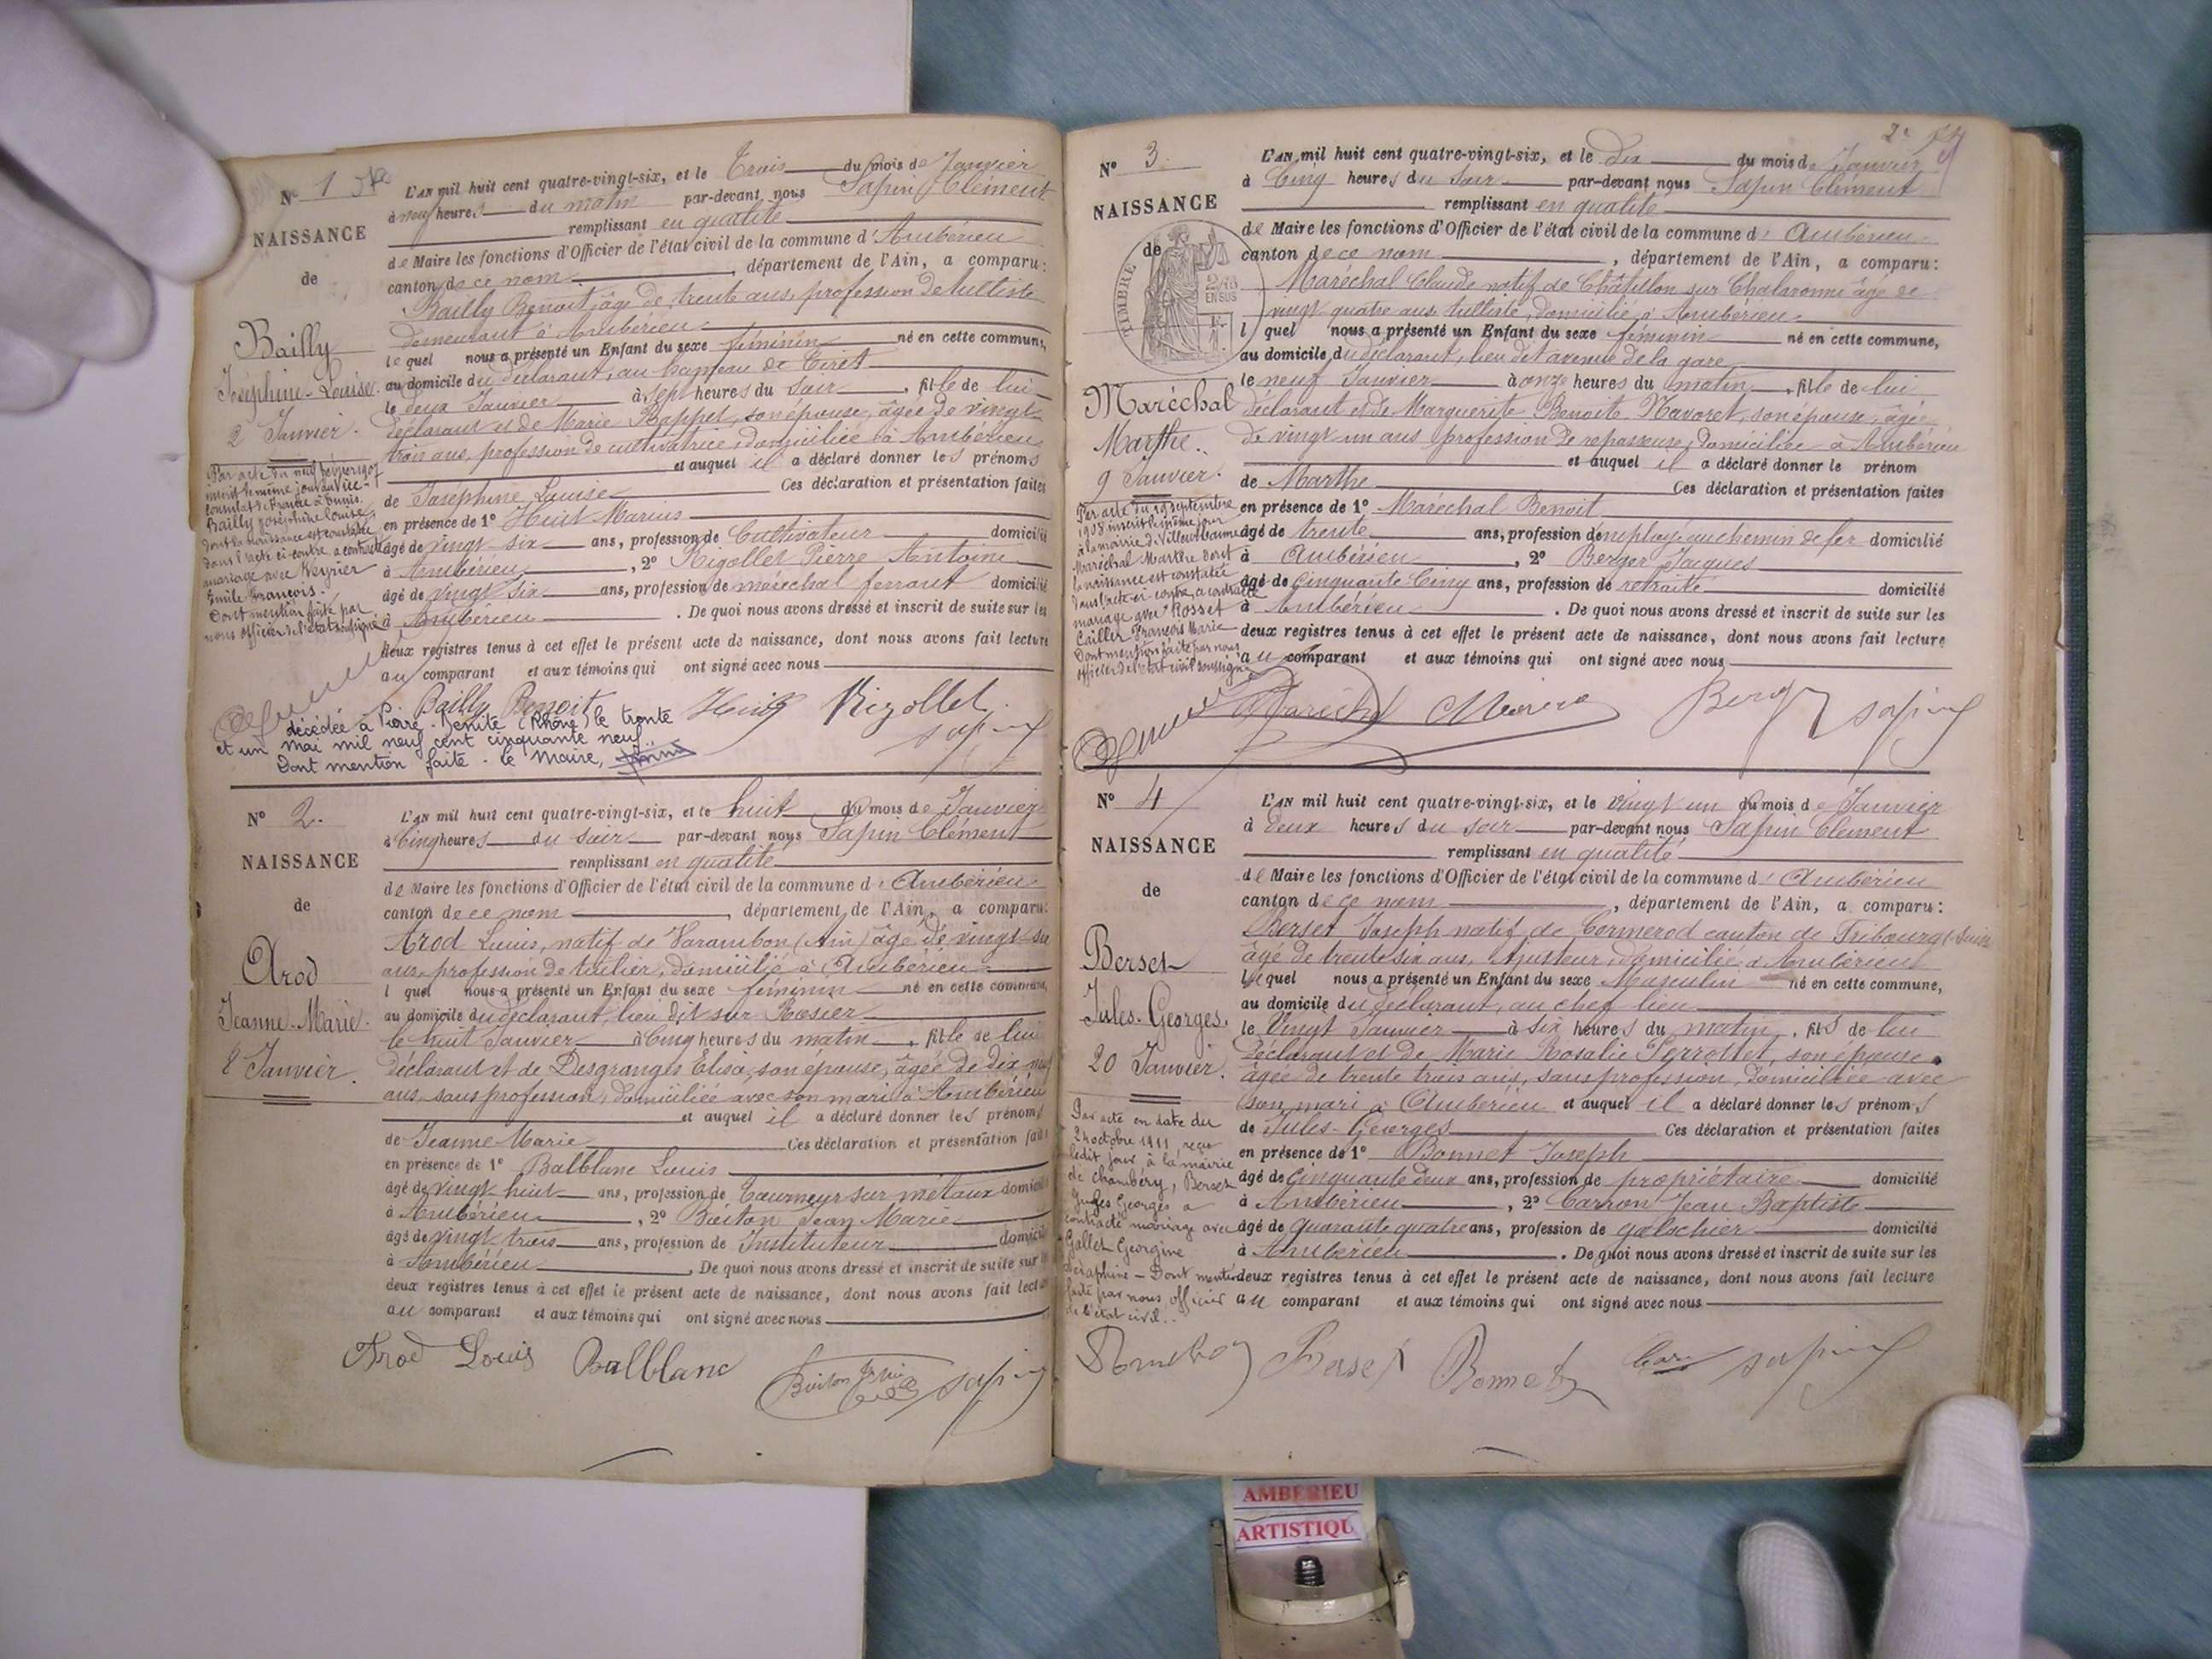 N° 1
NAISSANCE
de
Bailly
Joséphine-Louise.
2 Janvier.
Par acte du neuf février 1907
inscrit le même jour au Vice-
consulat de France à Tunis
Bailly Joséphine Louise,
dont la naissance est constatée
dans l'acte ci-contre, a contracté
mariage avec Veyrier
Emile François.
Dont mention faite par
nous officier de l'état soussigné
L'AN mil huit cent quatre-vingt-six, et le Trois du mois de Janvier
à neuf heures du matin par-devant nous Sapin Clément
remplissant en qualité
de Maire les fonctions d'Officier de l'état civil de la commune d'Ambérieu
canton de ce nom, département de l'Ain, a comparu:
Bailly Benoit, âgé de trente ans, profession de tulliste
demeurant à Ambérieu
lequel nous a présenté un Enfant du sexe féminin né en cette commune,
au domicile du déclarant, au hameau de Tiret
le deux Janvier à sept heures du soir, fille de lui
déclarant et de Marie Rappet, son épouse, âgée de vingt
trois ans, profession de cultivatrice, domiciliée à Ambérieu
et auquel il a déclaré donner les prénoms
de Joséphine Louise Ces déclaration et présentation faites
en présence de 1° Huit Marius
âgé de vingt six ans, profession de Cultivateur domicilié
à Ambérieu, 2° Rigollet Pierre Antoine
âgé de vingt six ans, profession de maréchal ferrant domicilié
à Ambérieu. De quoi nous avons dressé et inscrit de suite sur les
deux registres tenus à cet effet le présent acte de naissance, dont nous avons fait lecture
au comparant et aux témoins qui ont signé avec nous
Bailly Benoit Rigollet
sapin
décédée à Pierre-Bénite (Rhône) le trente
et un mai mil neuf cent cinquante neuf.
Dont mention faite. Le Maire,
N° 2.
NAISSANCE
de
Arod
Jeanne-Marie.
8 Janvier.
L'AN mil huit cent quatre-vingt-six, et le huit du mois de Janvier
à Cinq heures du soir par-devant nous Sapin Clément
remplissant en qualité
de Maire les fonctions d'Officier de l'état civil de la commune d'Ambérieu
canton de ce nom, département de l'Ain, a comparu:
Arod Louis, natif de Varambon (Ain) âgé de vingt six
ans, profession de tuilier, domicilié à Ambérieu
l quel nous a présenté un Enfant du sexe féminin né en cette commune,
au domicile du déclarant, lieu dit sur Rosier
le huit Janvier à Cinq heures du matin, fille de lui
déclarant et de Desgranges Elisa, son épouse, âgée de dix neuf
ans, sans profession, domiciliée avec son mari à Ambérieu
et auquel il a déclaré donner les prénoms
de Jeanne Marie Ces déclaration et présentation faites
en présence de 1° Balblanc Louis
âgé de vingt huit ans, profession de Tourneur sur métaux domicilié
à Ambérieu, 2° Buiton Jean Marie
âgé de vingt trois ans, profession de Instituteur domicilié
à Ambérieu. De quoi nous avons dressé et inscrit de suite sur les
deux registres tenus à cet effet le présent acte de naissance, dont nous avons fait lecture
au comparant et aux témoins qui ont signé avec nous
Arod Louis Balblanc sapin
2e
N° 3.
NAISSANCE
de
TIMBRE
EN SUS
Maréchal
Marthe.
9 Janvier.
Par acte du 19 septembre
1908 inscrit le même jour
à la mairie de Villeurbanne
Maréchal Marthe dont
la naissance est constatée
dans l'acte ci-contre, a contracté
mariage avec Rosset
Cailler François Marie
Dont mention faite par nous
officier de l'état civil soussigné
L'AN mil huit cent quatre-vingt-six, et le dix du mois de Janvier
à Cinq heures du soir par-devant nous Sapin Clément
remplissant en qualité
de Maire les fonctions d'Officier de l'état civil de la commune d'Ambérieu
canton de ce nom, département de l'Ain, a comparu:
Maréchal Claude natif de Châtillon sur Chalaronne âgé de
vingt quatre ans, tulliste, domicilié à Ambérieu
l quel nous a présenté un Enfant du sexe féminin né en cette commune,
au domicile du déclarant, lieu dit avenue de la gare
le neuf Janvier à onze heures du matin, fille de lui
déclarant et de Marguerite Benoite Navoret, son épouse, âgée
de vingt un ans profession de repasseuse, domiciliée à Ambérieu
et auquel il a déclaré donner le prénom
de Marthe Ces déclaration et présentation faites
en présence de 1° Maréchal Benoit
âgé de trente ans, profession d'employé au chemin de fer domicilié
à Ambérieu, 2° Berger Jacques
âgé de cinquante Cinq ans, profession de retraité domicilié
à Ambérieu. De quoi nous avons dressé et inscrit de suite sur les
deux registres tenus à cet effet le présent acte de naissance, dont nous avons fait lecture
au comparant et aux témoins qui ont signé avec nous
Maréchal Berger sapin
N° 4
NAISSANCE
de
Berset
Jules-Georges.
20 Janvier.
Par acte en date du
21 octobre 1911, reçu
ledit jour à la mairie
de Chambéry, Berset
Jules Georges a
contracté mariage avec
Gallet Georgine
Séraphine - Dont mention
faite par nous officier
de l'état civil.
L'AN mil huit cent quatre-vingt-six, et le vingt un du mois de Janvier
à Deux heures du soir par-devant nous Sapin Clément
remplissant en qualité
de Maire les fonctions d'Officier de l'état civil de la commune d'Ambérieu
canton de ce nom, département de l'Ain, a comparu:
Berset Joseph natif de Cormerod canton de Fribourg (Suisse
âgé de trente six ans, Ajusteur, domicilié à Ambérieu
lequel nous a présenté un Enfant du sexe Masculin né en cette commune,
au domicile du déclarant, au chef lieu
le Vingt Janvier à six heures du matin, fils de lui
déclarant et de Marie Rosalie Perrottet, son épouse
âgée de trente trois ans, sans profession, domiciliée avec
son mari à Ambérieu et auquel il a déclaré donner les prénoms
de Jules-Georges Ces déclaration et présentation faites
en présence de 1° Bonnet Joseph
âgé de cinquante deux ans, profession de propriétaire domicilié
à Ambérieu, 2° Carron Jean Baptiste
âgé de quarante quatre ans, profession de galochier domicilié
à Ambérieu. De quoi nous avons dressé et inscrit de suite sur les
deux registres tenus à cet effet le présent acte de naissance, dont nous avons fait lecture
au comparant et aux témoins qui ont signé avec nous
Berset Bonnet sapin
AMBERIEU
ARTISTIQU